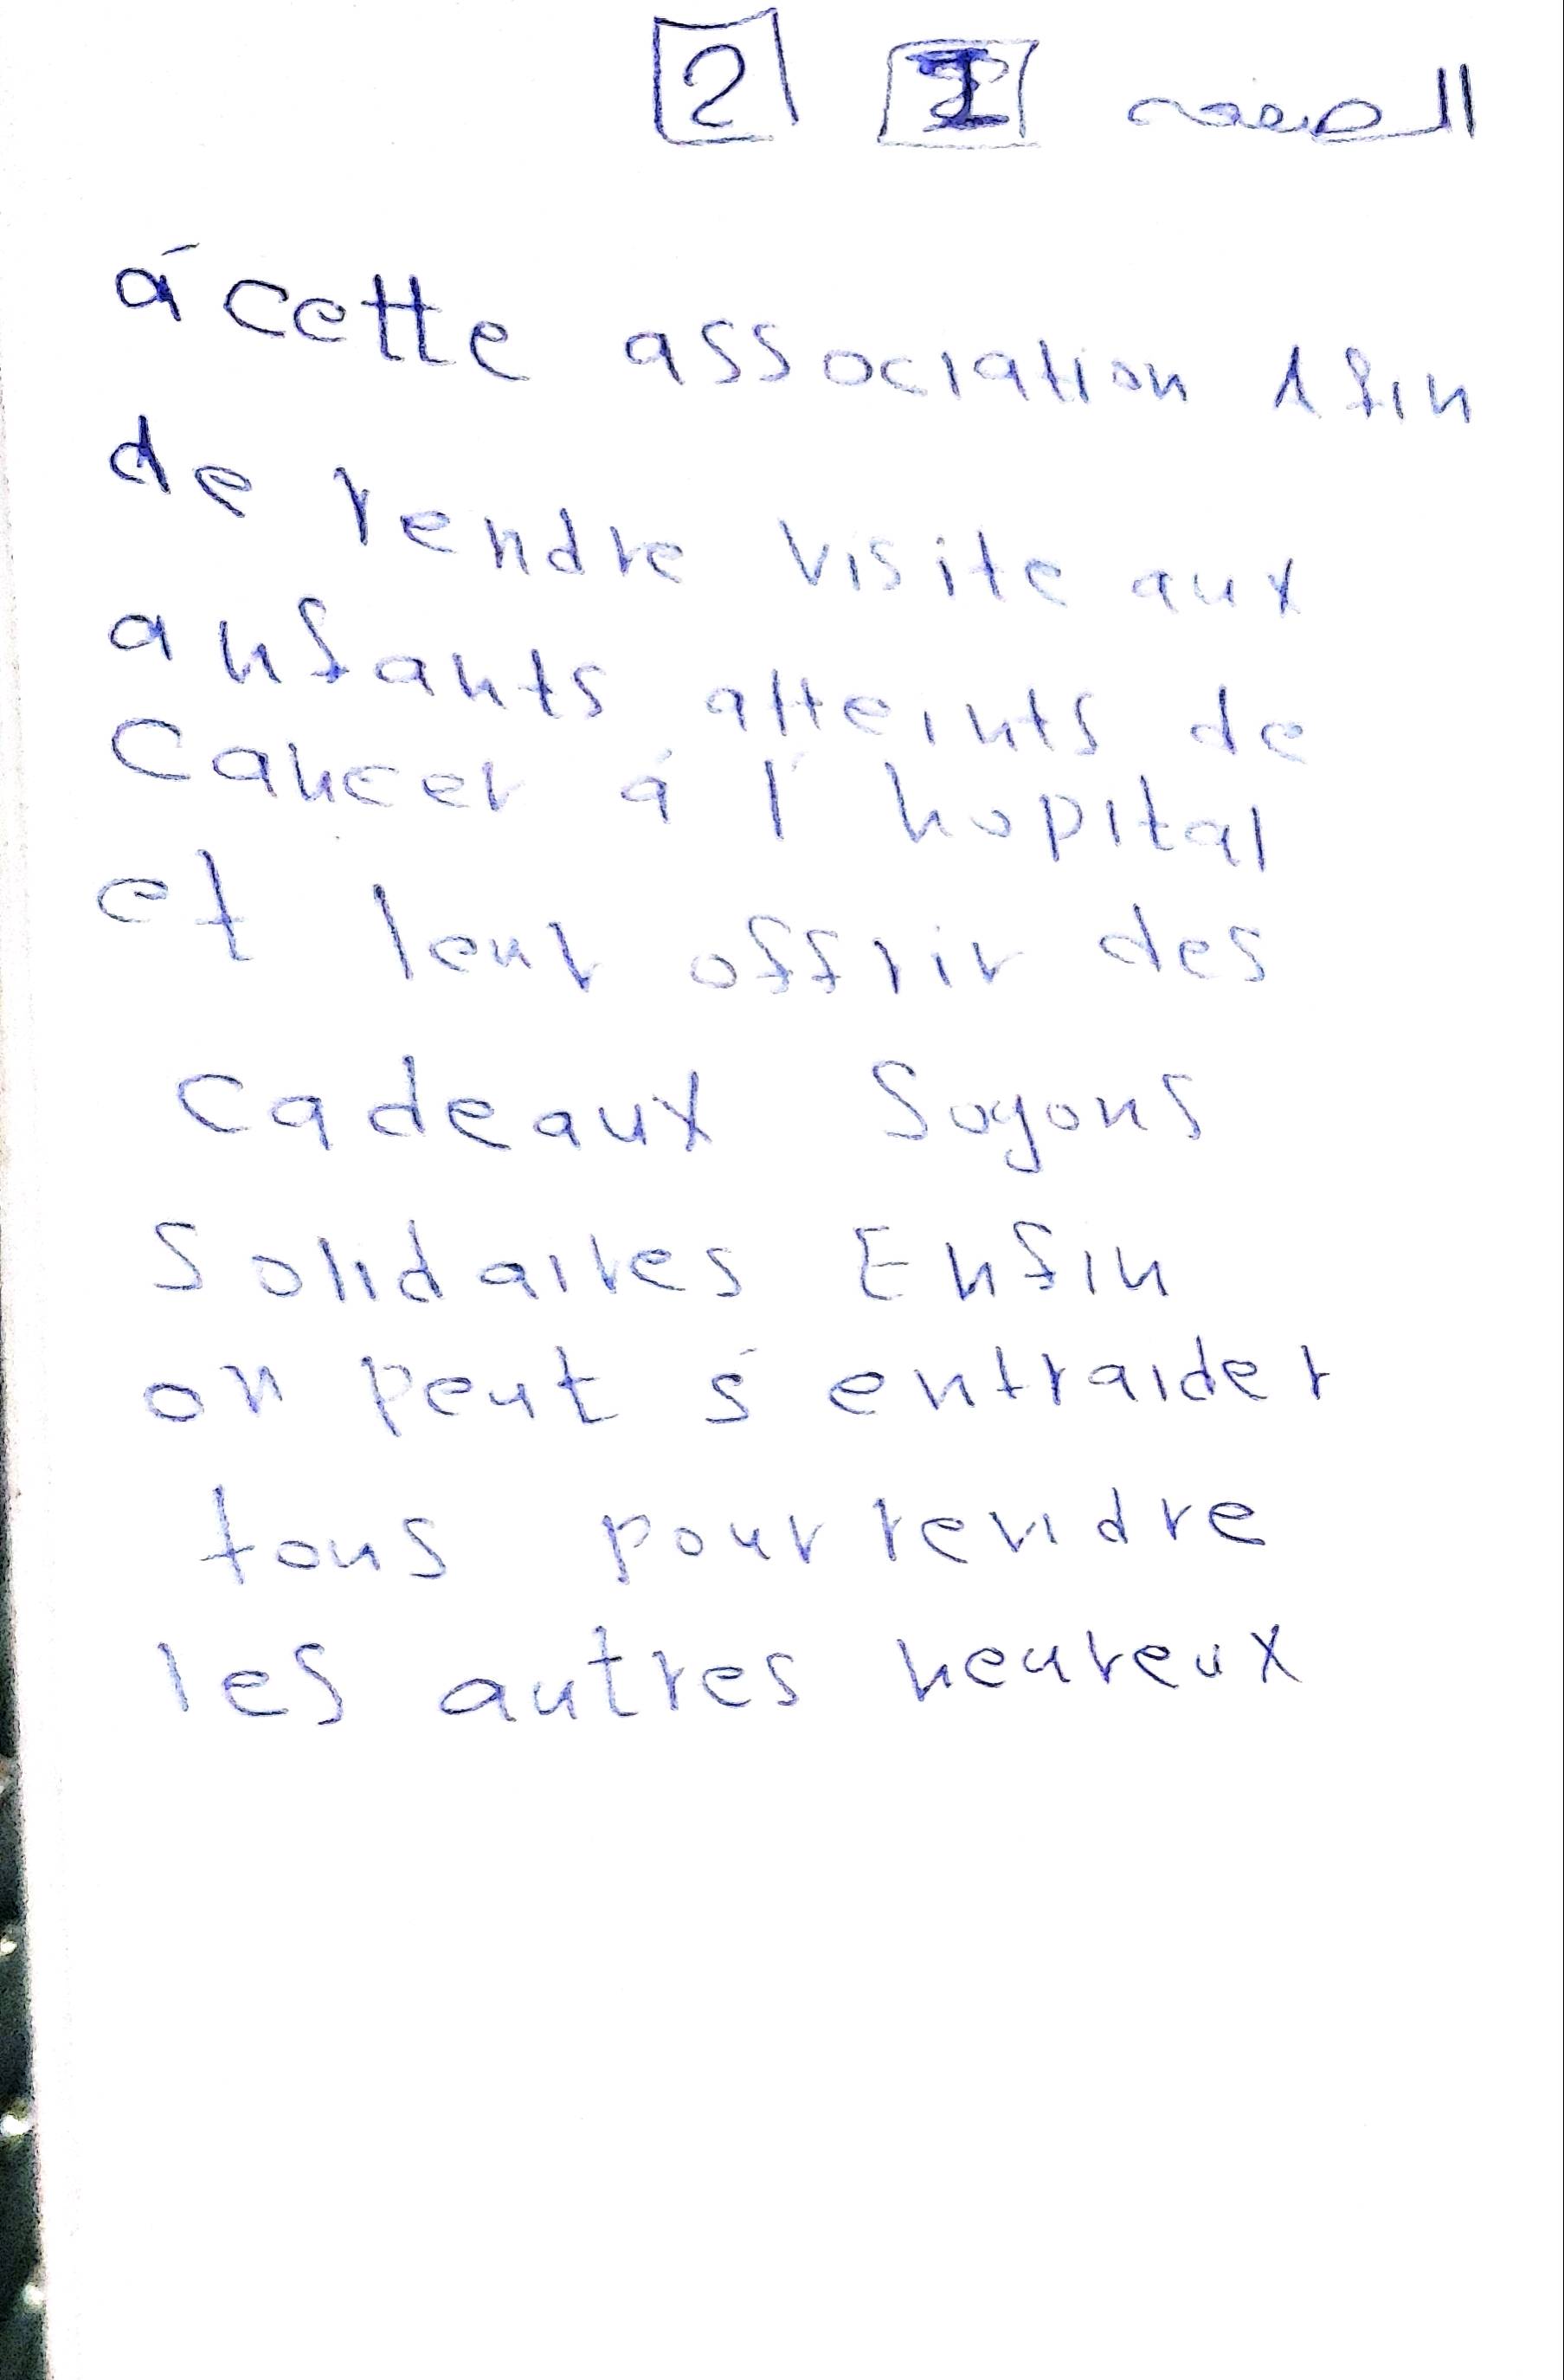 الصفحة 2
á cette association Afin
de rendre visite aux
anfants atteints de
Cancer á l'hopital
et leur offrir des
cadeaux Soyons
Solidaires Enfin
on peut s'entraider
tous pour rendre
les autres heureux